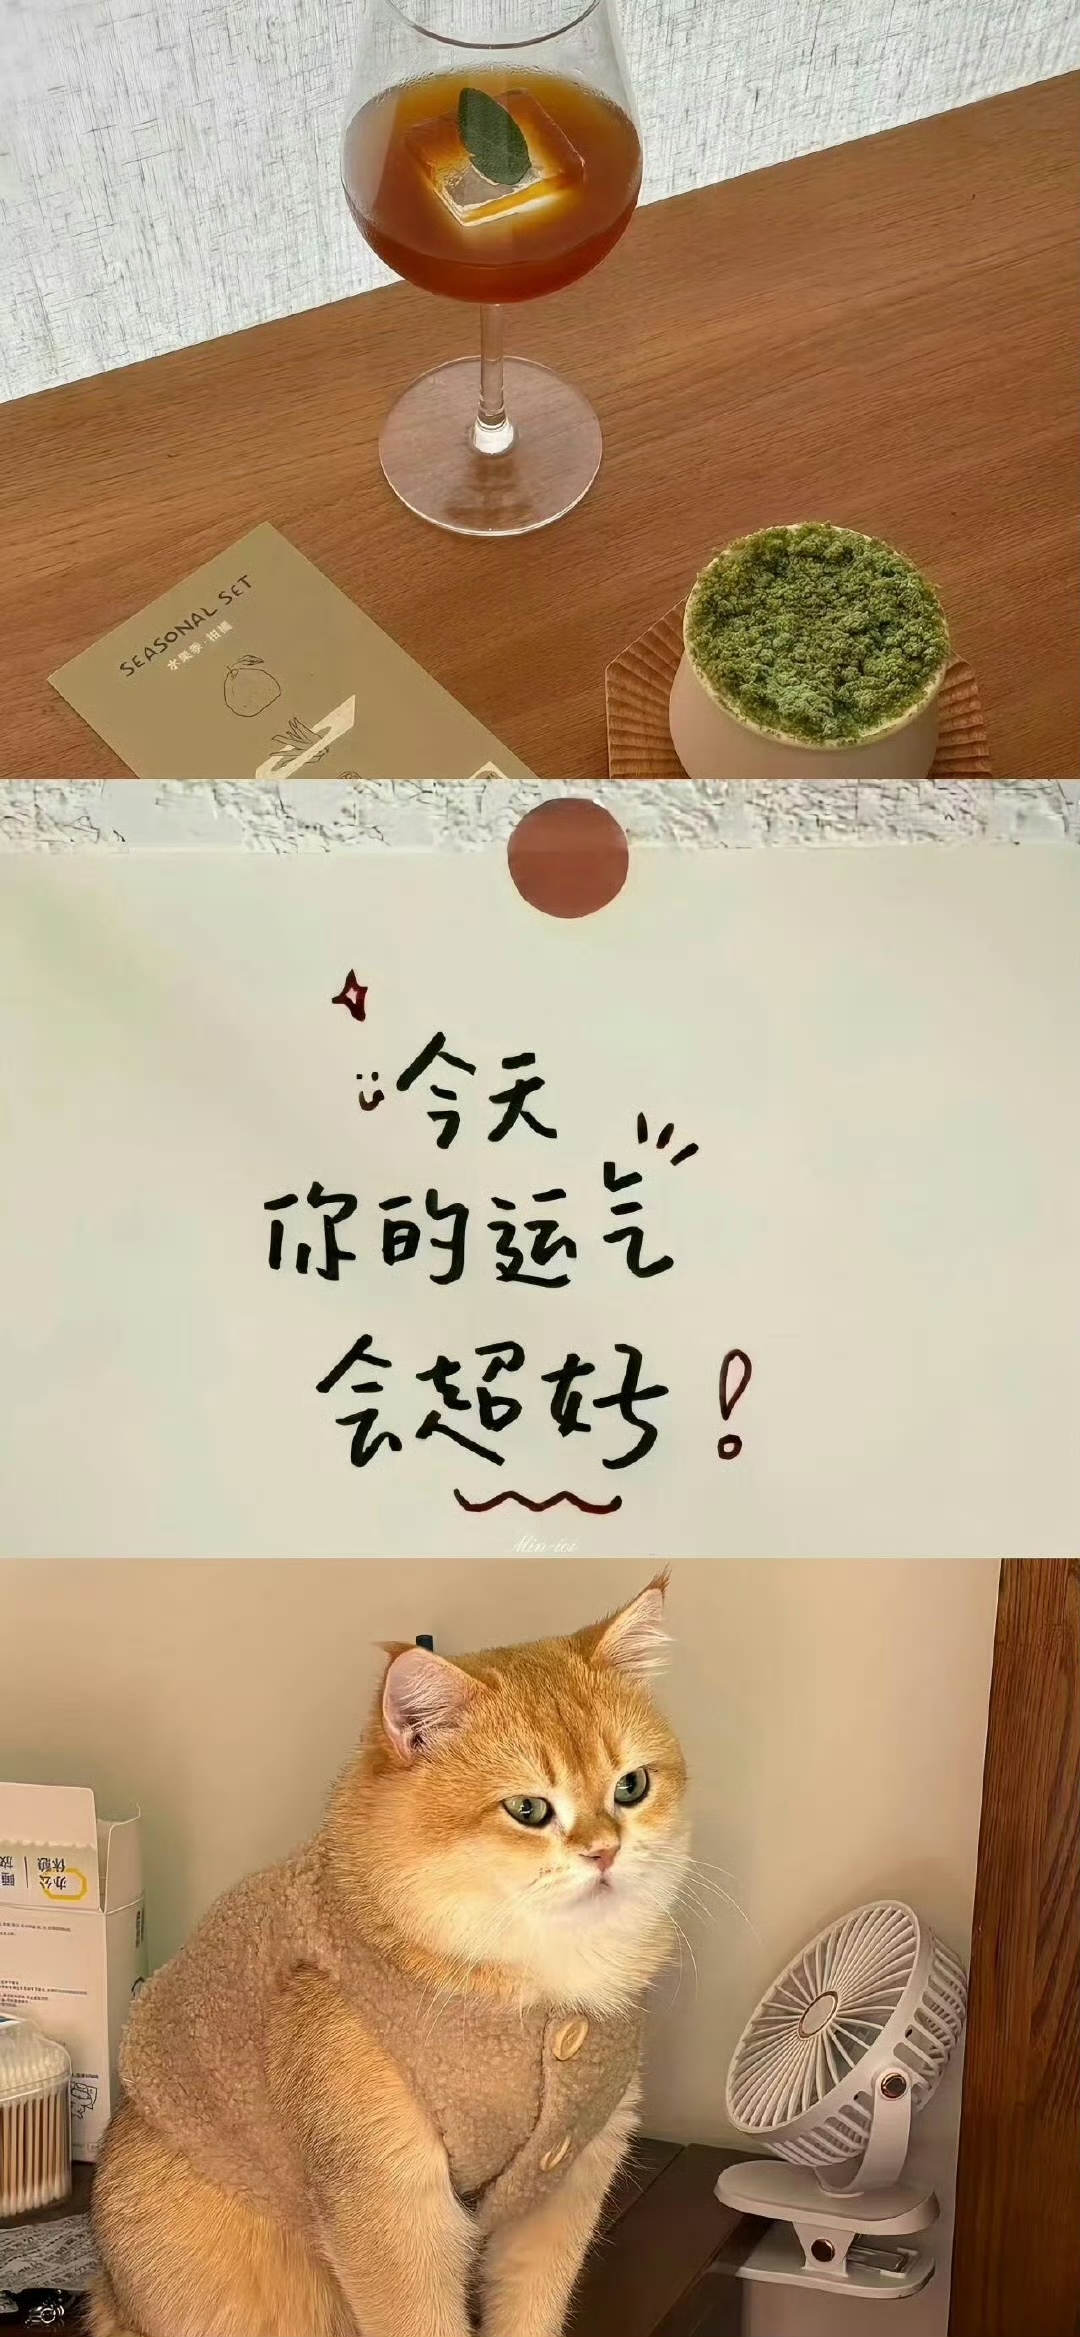 SEASONAL SET
水果季·柑橘
今天
你的运气
会超好!
Min-ioi
办公
休憩